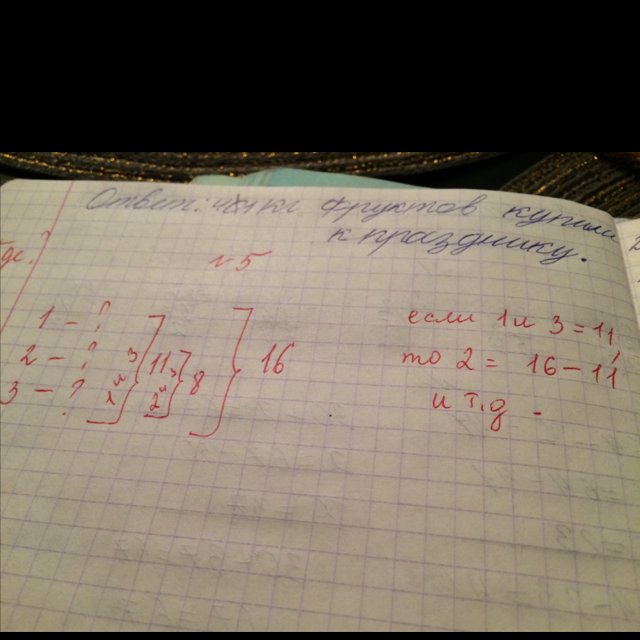 Ответ: фруктов
к празднику.
№5
1 - ?
2 - ? 3 11 3 16
3 - ? 1 и 2 и 8
если 1 и 3 = 11,
то 2 = 16 - 11
и т.д.